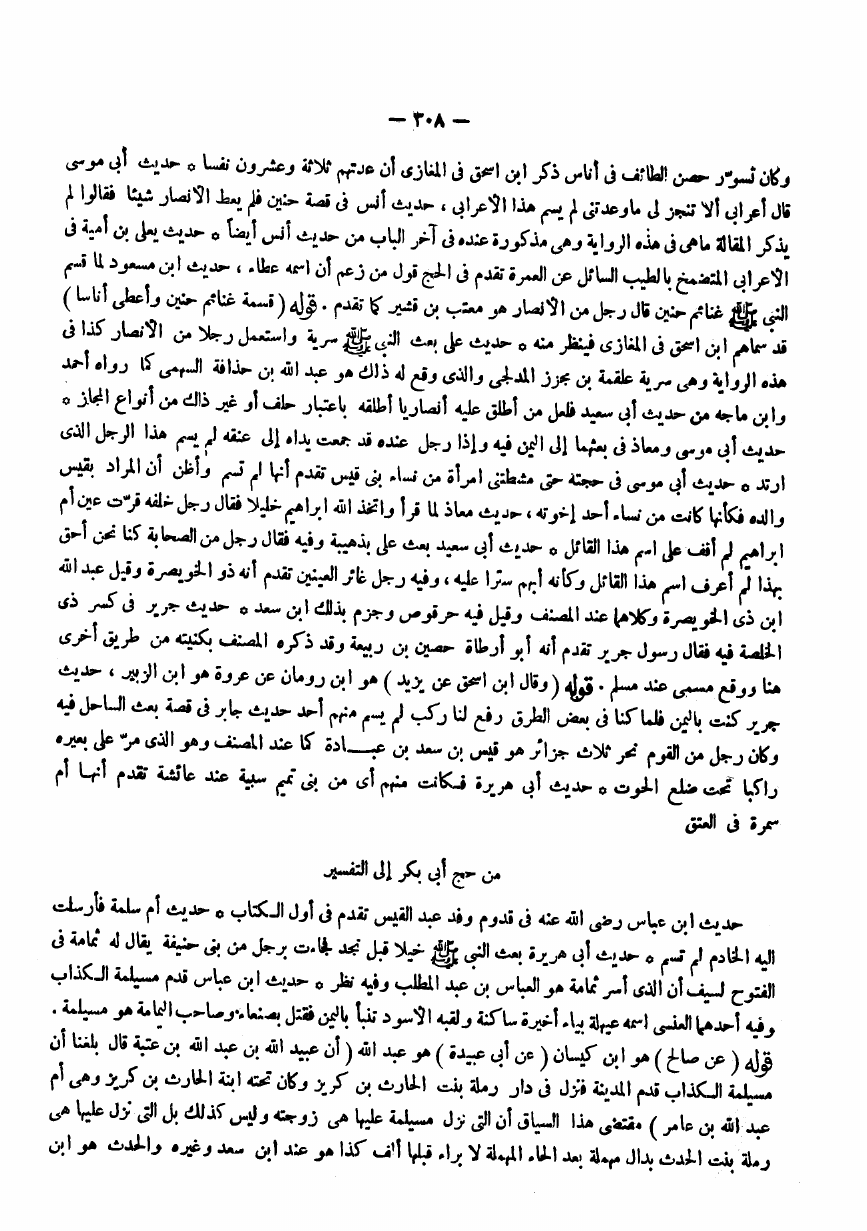 — ٣٠٨ —
وكان تسوّر حصن الطائف فى أناس ذكر ابن اسحق فى المغازى أن عدتهم ثلاثة وعشرون نفسا ۞ حديث أبى موسى
قال أعرابى ألا تنجز لى ماوعدتنى لم يسم هذا الأعرابى ، حديث أنس فى قصة حنين فلم يعط الأنصار شيئا فقالوا لم
يذكر المقالة ماهى فى هذه الرواية وهى مذكورة عنده فى آخر الباب من حديث أنس أيضاً ۞ حديث يعلى بن أمية فى
الأعرابى المتضمخ بالطيب السائل عن العمرة تقدم فى الحج قول من زعم أن اسمه عطاء ، حديث ابن مسعود لما قسم
النبى ﷺ غنائم حنين قال رجل من الأنصار هو معتب بن قشير كما تقدم . قوله ( قسمة غنائم حنين وأعطى أناسا )
قد سماهم ابن اسحق فى المغازى فينظر منه ۞ حديث على بعث النبى ﷺ سرية واستعمل رجلا من الأنصار كذا فى
هذه الرواية وهى سرية علقمة بن مجزز المدلجى والذى وقع له ذلك هو عبد الله بن حذافة السهمى كما رواه أحمد
وابن ماجه من حديث أبى سعيد فلعل من أطلق عليه أنصاريا أطلقه باعتبار حلف أو غير ذاك من أنواع المجاز ۞
حديث أبى موسى ومعاذ فى بعثهما إلى اليمن فيه وإذا رجل عنده قد جمعت يداه إلى عنقه لم يسم هذا الرجل الذى
ارتد ۞ حديث أبى موسى فى حجته حتى مشطتنى امرأة من نساء بنى قيس تقدم أنها لم تسم وأظن أن المراد بقيس
والده فكأنها كانت من نساء أحد إخوته ، حديث معاذ لما قرأ واتخذ الله ابراهيم خليلا فقال رجل خلفه قرّت عين أم
ابراهيم لم أقف على اسم هذا القائل ۞ حديث أبى سعيد بعث على بذهيبة وفيه فقال رجل من الصحابة كنا نحن أحق
بهذا لم أعرف اسم هذا القائل وكأنه أبهم سترا عليه ، وفيه رجل غائر العينين تقدم أنه ذو الخويصرة وقيل عبد الله
ابن ذى الخويصرة وكلاهما عند المصنف وقيل فيه حرقوص وجزم بذلك ابن سعد ۞ حديث جرير فى كسر ذى
الخلصة فيه فقال رسول جرير تقدم أنه أبو أرطاة حصين بن ربيعة وقد ذكره المصنف بكنيته من طريق أخرى
هنا ووقع مسمى عند مسلم . قوله ( وقال ابن اسحق عن يزيد ) هو ابن رومان عن عروة هو ابن الزبير ، حديث
جرير كنت باليمن فلما كنا فى بعض الطرق رفع لنا ركب لم يسم منهم أحد حديث جابر فى قصة بعث الساحل فيه
وكان رجل من القوم نحر ثلاث جزائر هو قيس بن سعد بن عبادة كما عند المصنف وهو الذى مرّ على بعيره
راكبا تحت ضلع الحوت ۞ حديث أبى هريرة فكانت منهم أى من بنى تميم سبية عند عائشة تقدم أنها أم
سمرة فى العتق
من حج أبى بكر إلى التفسير
حديث ابن عباس رضى الله عنه فى قدوم وفد عبد القيس تقدم فى أول الكتاب ۞ حديث أم سلمة فأرسلت
اليه الخادم لم تسم ۞ حديث أبى هريرة بعث النبى ﷺ خيلا قبل نجد فجاءت برجل من بنى حنيفة يقال له ثمامة فى
الفتوح لسيف أن الذى أسر ثمامة هو العباس بن عبد المطلب وفيه نظر ۞ حديث ابن عباس قدم مسيلمة الكذاب
وفيه أحدهما العنسى اسمه عيهلة بياء أخيرة ساكنة ولقبه الأسود تنبأ باليمن فقتل بصنعاء وصاحب اليمامة هو مسيلمة .
قوله ( عن صالح ) هو ابن كيسان ( عن أبى عبيدة ) هو عبد الله ( أن عبيد الله بن عبد الله بن عتبة قال بلغنا أن
مسيلمة الكذاب قدم المدينة فنزل فى دار رملة بنت الحارث بن كريز وكان تحته ابنة الحارث بن كريز وهى أم
عبد الله بن عامر ) مقتضى هذا السياق أن التى نزل مسيلمة عليها هى زوجته وليس كذلك بل التى نزل عليها هى
رملة بنت الحدث بدال مهملة بعد الحاء المهملة لا براء قبلها ألف كذا هو عند ابن سعد وغيره والحدث هو ابن